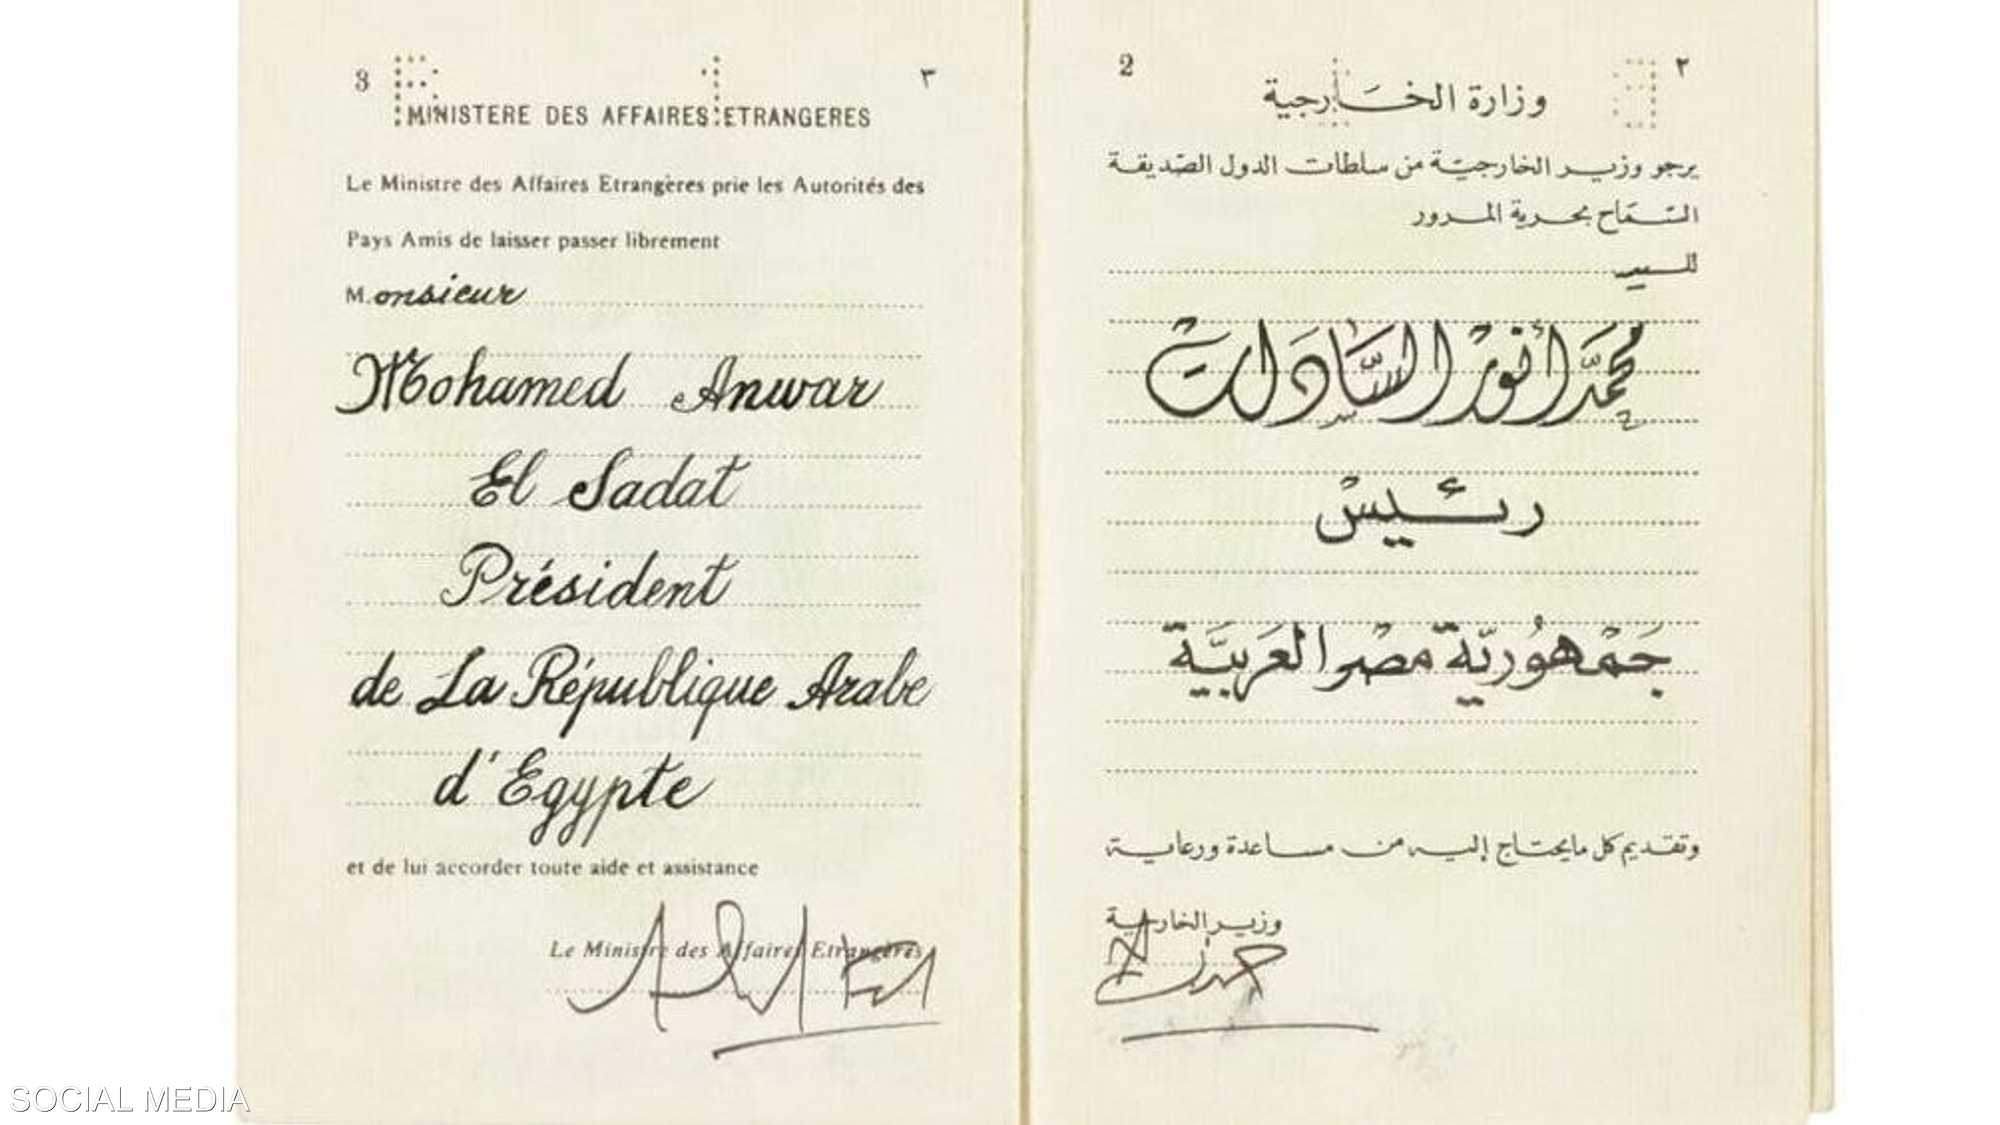 3 ٣
MINISTERE DES AFFAIRES ETRANGERES
Le Ministre des Affaires Etrangères prie les Autorités des
Pays Amis de laisser passer librement
M.onsieur
Mohamed Anwar
El Sadat
Président
de La République Arabe
d'Egypte
et de lui accorder toute aide et assistance
Le Ministre des Affaires Etrangères
2 ٢
وزارة الخارجية
يرجو وزير الخارجيّة من سلطات الدول الصّديقة
السّمَاح بحرية المرور
للسيد
محمَّد أنور السَّادَات
رئيس
جَمْهُوريَّة مصْر العَربيَّة
وتقديم كل مايحتاج إليه من مساعدة ورعاية
وزير الخارجية
SOCIAL MEDIA